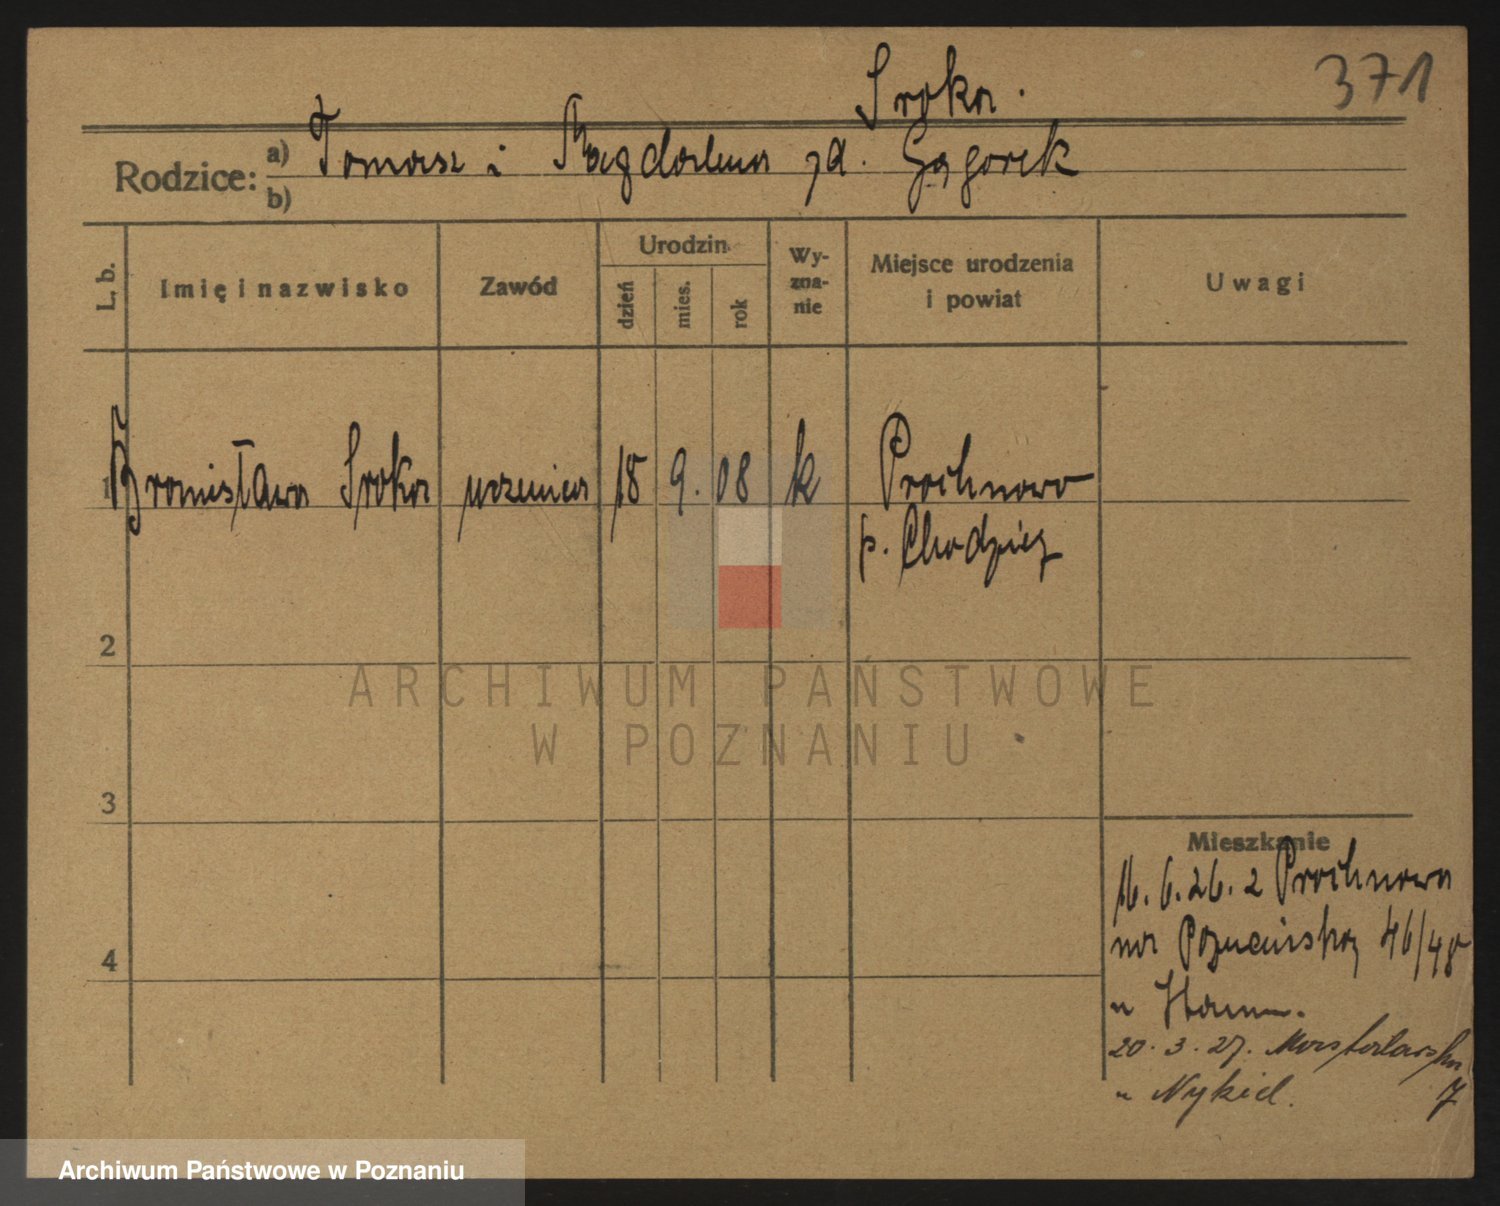 371
Sroka.
Rodzice: a) Tomasz i Magdalena zd. Gągorek
b)
L. b.
Imię i nazwisko
Zawód
Urodzin
dzień
mies.
rok
Wy-
zna-
nie
Miejsce urodzenia
i powiat
Uwagi
1 Bronisława Sroka uczenica 18 9. 08 k Prochnowo
p. Chodzież
2
ARCHIWUM PAŃSTWOWE
W POZNANIU
3
Mieszkanie
4
16. 6. 26. z Prochnowa
na Poznańską 46/48
u
20. 3. 27.
7
u Nykiel.
Archiwum Państwowe w Poznaniu